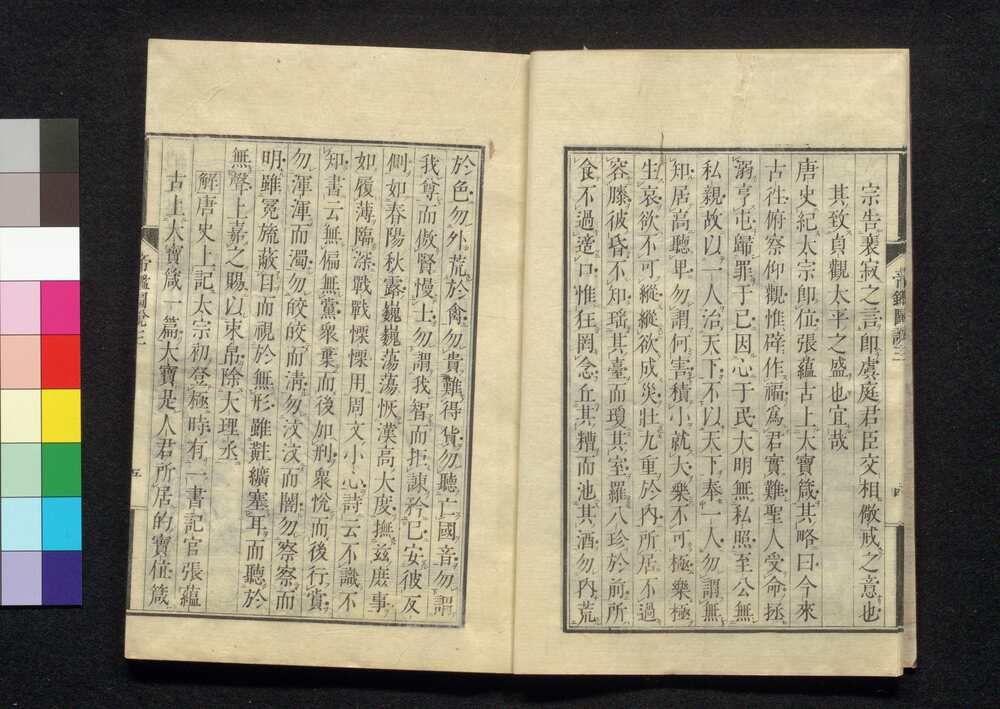 宗告裴寂之言即虞庭君臣交相儆戒之意也
其致貞觀太平之盛也宜哉
唐史紀太宗即位張蘊古上大寶箴其略曰今來
古往俯察仰觀惟辟作福爲君實難聖人受命拯
溺亨屯歸罪于己因心于民大明無私照至公無
私親故以一人治天下不以天下奉一人勿謂無
知居高聽卑勿謂何害積小就大樂不可極樂極
生哀欲不可縱縱欲成災壯九重於內所居不過
容膝彼昏不知瑤其臺而瓊其室羅八珍於前所
食不過適口惟狂罔念丘其糟而池其酒勿內荒
帝鑑圖說三
四
於色勿外荒於禽勿貴難得貨勿聽亡國音勿謂
我尊而傲賢慢士勿謂我智而拒諫矜己安彼反
側如春陽秋露巍巍蕩蕩恢漢高大度撫茲庶事
如履薄臨深戰戰慄慄用周文小心詩云不識不
知書云無偏無黨衆棄而後加刑衆悅而後行賞
勿渾渾而濁勿皎皎而清勿汶汶而闇勿察察而
明雖冕旒蔽目而視於無形雖黈纊塞耳而聽於
無聲上嘉之賜以束帛除大理丞
解唐史上記太宗初登極時有一書記官張蘊
古上大寶箴一篇大寶是人君所居的寶位箴
帝鑑圖說三
五